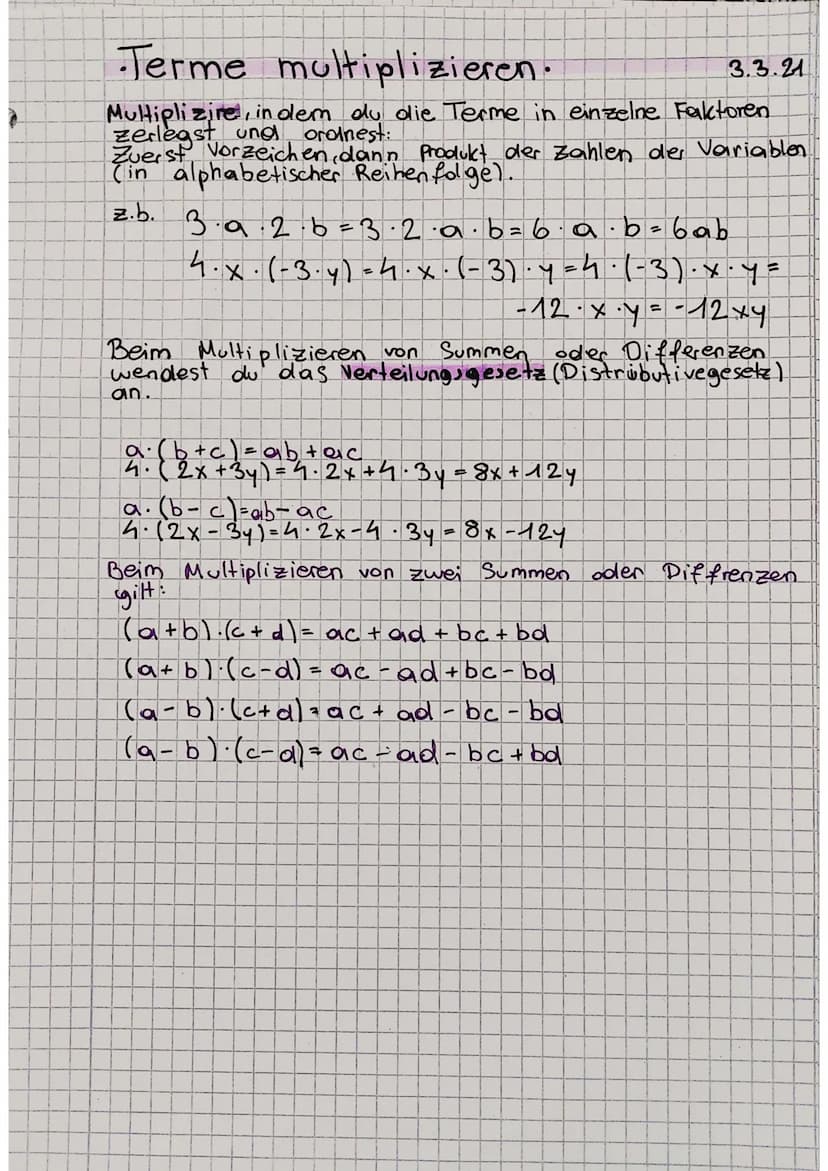 ·Terme multiplizieren·
3.3.21
Multiplizire, indem du die Terme in einzelne Faktoren
zerlegst und ordnest:
Zuerst Vorzeichen, dann Produkt der Zahlen der Variablen
(in alphabetischer Reihenfolge).
z.b. 3·a·2·b=3·2·a·b=6·a·b=6ab
4·x·(-3·y)=4·x·(-3)·y=4·(-3)·x·y=
-12·x·y=-12xy
Beim Multiplizieren von Summen oder Differenzen
wendest du das Verteilungsgesetz (Distributivegesetz)
an.
a·(b+c)=ab+ac
4·(2x+3y)=4·2x+4·3y=8x+12y
a·(b-c)=ab-ac
4·(2x-3y)=4·2x-4·3y=8x-12y
Beim Multiplizieren von zwei Summen oder Diffrenzen
gilt:
(a+b)·(c+d)=ac+ad+bc+bd
(a+b)·(c-d)=ac-ad+bc-bd
(a-b)·(c+d)=ac+ad-bc-bd
(a-b)·(c-d)=ac-ad-bc+bd